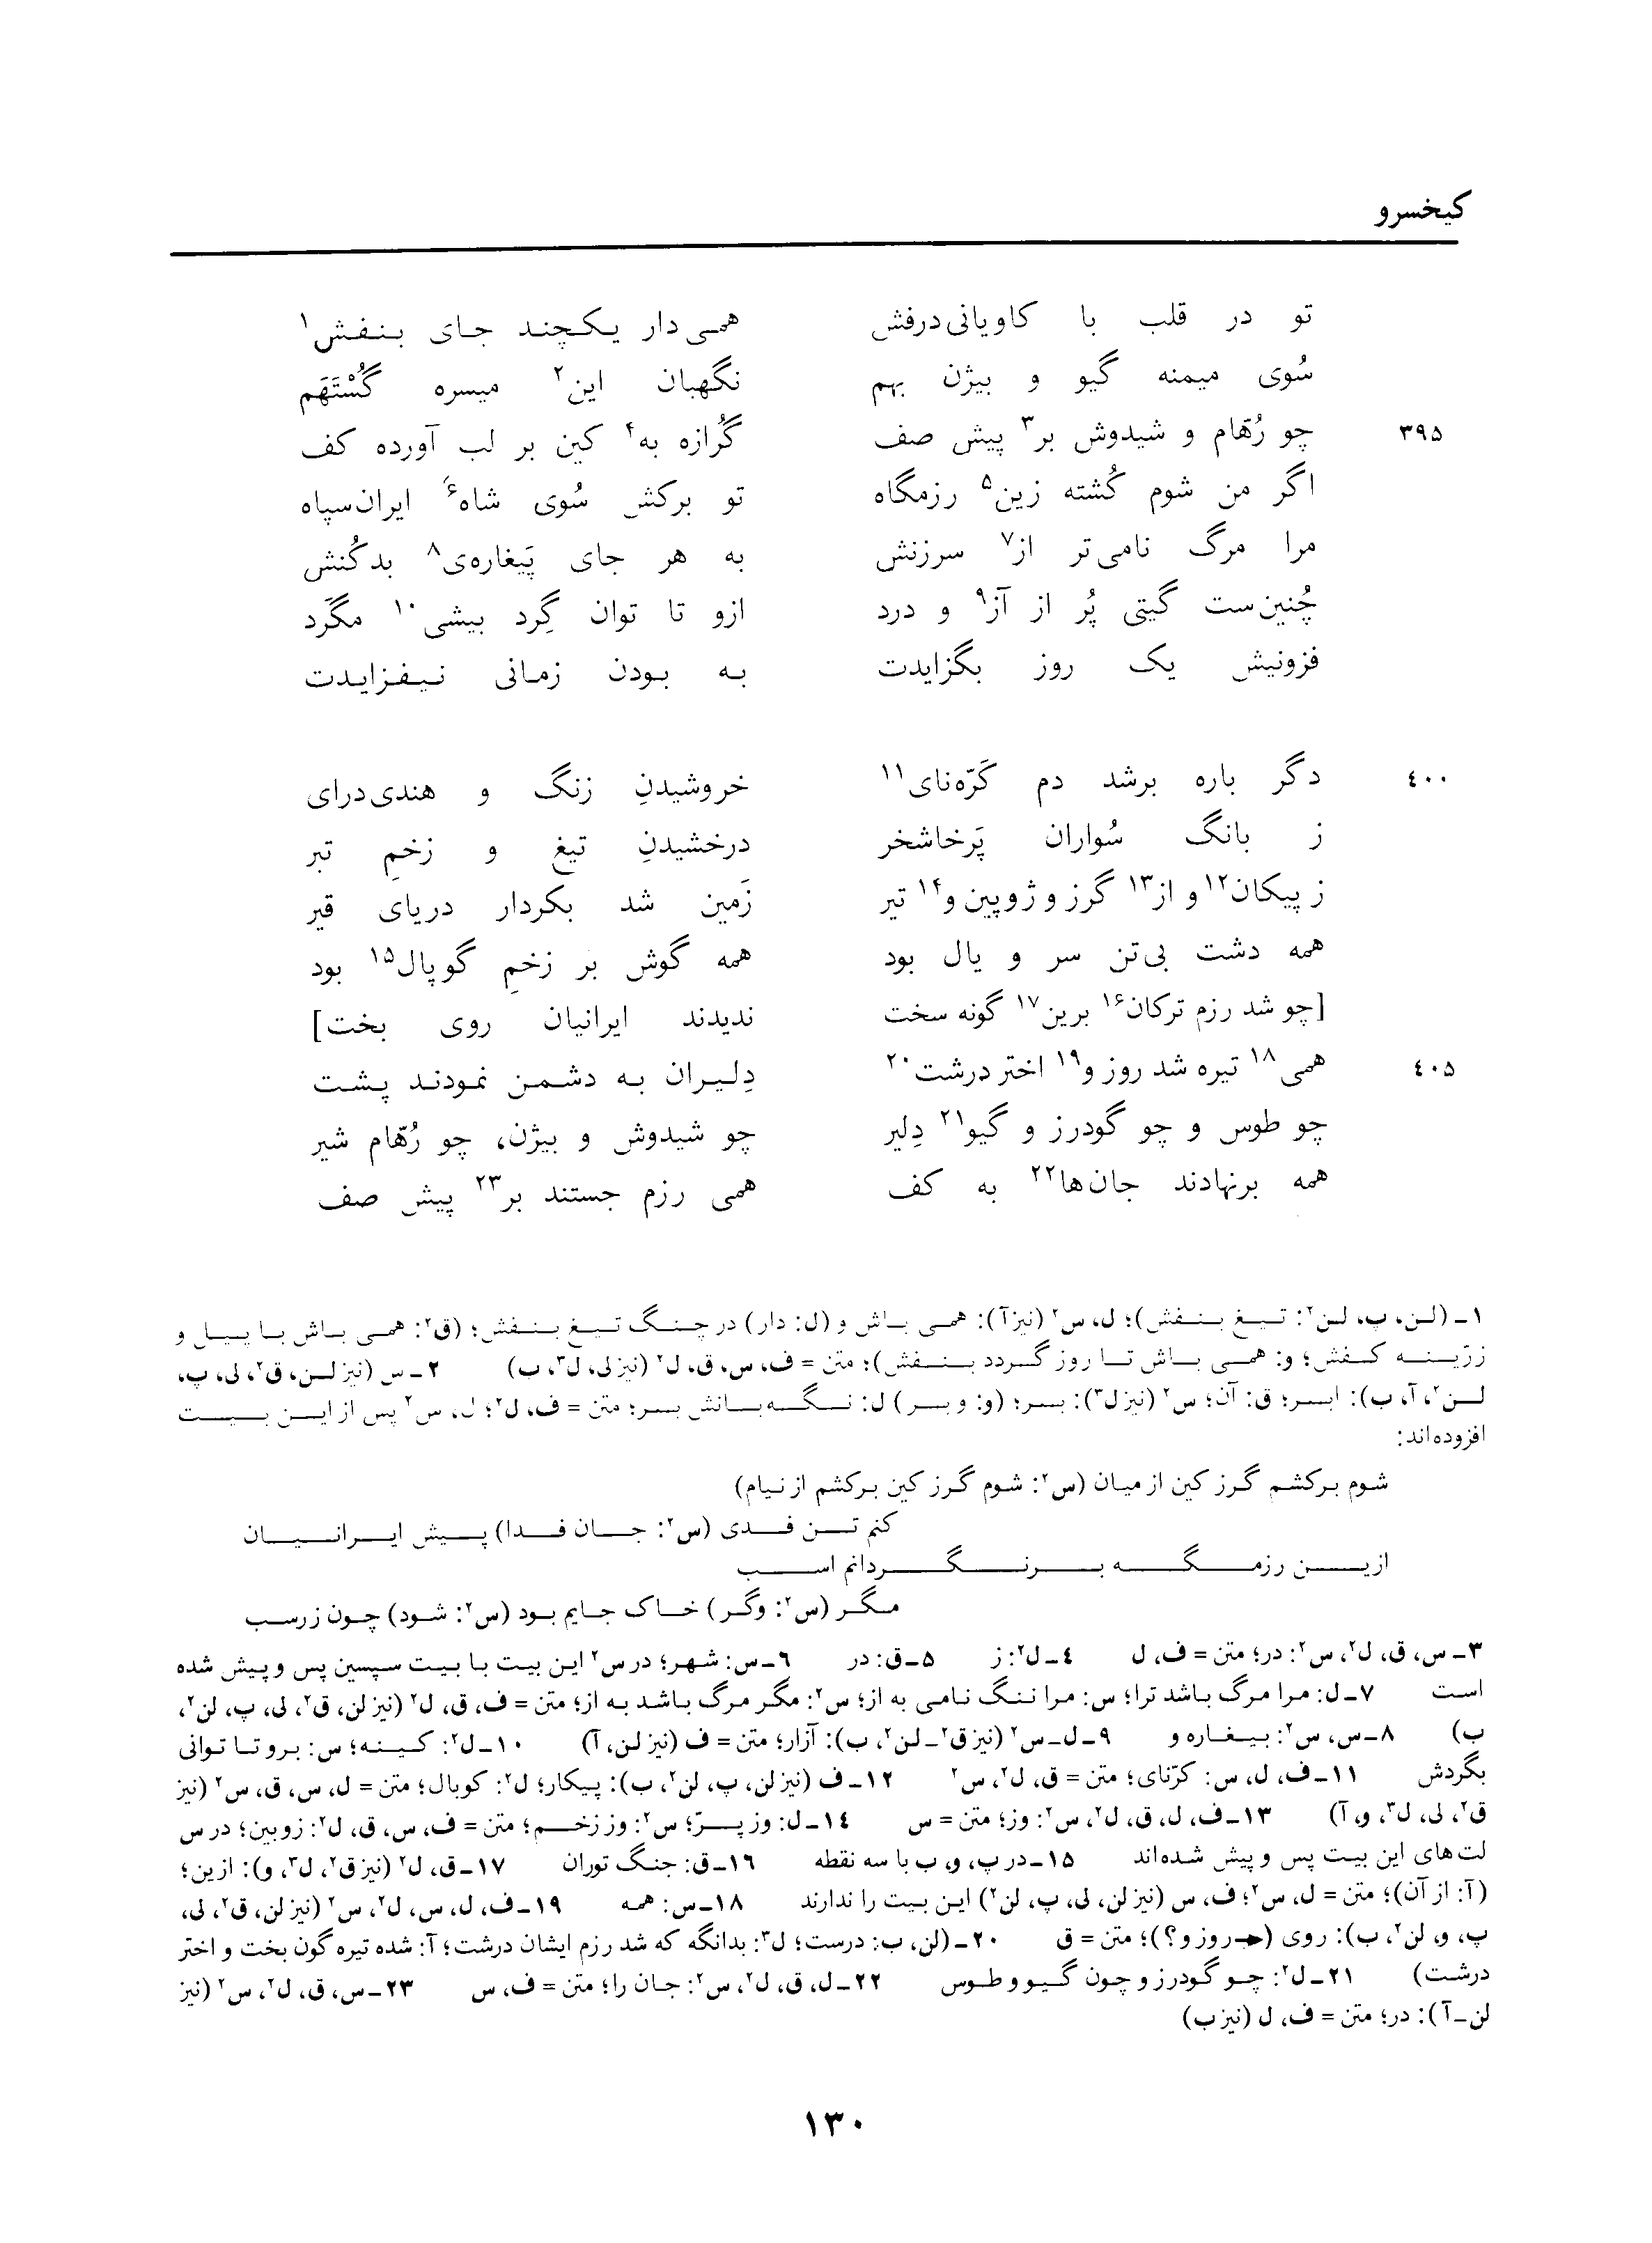 کیخسرو
تو در قلب با کاویانی‌درفش همی‌دار یکچند جای بنفش۱
سُوی میمنه گیو و بیژن بهم نگهبان این۲ میسره گُسْتَهَم
۳۹۵ چو رُهّام و شیدوش بر۳ پیش صف گُرازه به۴ کین بر لب آورده کف
اگر من شوم کُشته زین۵ رزمگاه تو برکش سُوی شاه۶ ایران‌سپاه
مرا مرگ نامی‌تر از۷ سرزنش به هر جای پَیغاره‌ی۸ بدکُنش
چُنین‌ست گیتی پُر از آز۹ و درد ازو تا توان گِرد بیشی۱۰ مگَرد
فزونیش یک روز بگزایدت به بودن زمانی نیفزایدت
۴۰۰ دگر باره برشد دم کَرّه‌نای۱۱ خروشیدنِ زنگ و هندی‌درای
ز بانگ سُواران پَرخاشخر درخشیدنِ تیغ و زخمِ تبر
ز پیکان۱۲ و از۱۳ گرز و ژوپین و۱۴ تیر زَمین شد بکردار دریای قیر
همه دشت بی‌تن سر و یال بود همه گوش بر زخمِ گوپال۱۵ بود
[چو شد رزم ترکان۱۶ برین۱۷ گونه سخت ندیدند ایرانیان روی بخت]
۴۰۵ همی۱۸ تیره شد روز و۱۹ اختر درشت۲۰ دِلیران به دشمن نمودند پشت
چو طوس و چو گودرز و گیو۲۱ دِلیر چو شیدوش و بیژن، چو رُهّام شیر
همه برنهادند جان‌ها۲۲ به کف همی رزم جستند بر۲۳ پیش صف
۱ـ (لن، پ، لن۲: تیغ بنفش)؛ ل، س۲ (نیزآ): همی باش و (ل: دار) در چنگ تیغ بنفش؛ (ق۲: همی باش با پیل و
زرّینه کفش؛ و: همی باش تا روز گردد بنفش)؛ متن = ف، س، ق، ل۲ (نیز لی، ل۳، ب) ۲ـ س (نیز لن، ق۲، لی، پ،
لن۲، آ، ب): ابر؛ ق: آن؛ س۲ (نیز ل۳): بر؛ (و: و بر) ل: نگه‌بانش بر؛ متن = ف، ل۲؛ ل، س۲ پس از این بیت
افزوده‌اند:
شوم برکشم گرز کین از میان (س۲: شوم گرز کین برکشم از نیام)
کنم تن فدی (س۲: جان فدا) پیش ایرانیان
ازین رزمگه برنگردانم اسب
مگر (س۲: وگر) خاک جایم بود (س۲: شود) چون زرسب
۳ـ س، ق، ل۲، س۲: در؛ متن = ف، ل ۴ـ ل۲: ز ۵ـ ق: در ۶ـ س: شهر؛ در س۲ این بیت با بیت سپسین پس و پیش شده
است ۷ـ ل: مرا مرگ باشد ترا؛ س: مرا ننگ نامی به از؛ س۲: مگر مرگ باشد به از؛ متن = ف، ق، ل۲ (نیز لن، ق۲، لی، پ، لن۲،
ب) ۸ـ س، س۲: بیغاره و ۹ـ ل-س۲ (نیز ق۲ـ لن۲، ب): آزار؛ متن = ف (نیز لن، آ) ۱۰ـ ل۲: کینه؛ س: برو تا توانی
بگردش ۱۱ـ ف، ل، س: کرّنای؛ متن = ق، ل۲، س۲ ۱۲ـ ف (نیز لن، پ، لن۲، ب): پیکار؛ ل۲: کوبال؛ متن = ل، س، ق، س۲ (نیز
ق۲، لی، ل۳، و، آ) ۱۳ـ ف، ل، ق، ل۲، س۲: وز؛ متن = س ۱۴ـ ل: وز پرّ؛ س۲: وز زخم؛ متن = ف، س، ق، ل۲: زوبین؛ در س
لت‌های این بیت پس و پیش شده‌اند ۱۵ـ در پ، و، ب با سه نقطه ۱۶ـ ق: جنگ توران ۱۷ـ ق، ل۲ (نیز ق۲، ل۳، و): ازین؛
(آ: از آن)؛ متن = ل، س۲؛ ف، س (نیز لن، لی، پ، لن۲) این بیت را ندارند ۱۸ـ س: همه ۱۹ـ ف، ل، س، ل۲، س۲ (نیز لن، ق۲، لی،
پ، و، لن۲، ب): روی (← روز و؟)؛ متن = ق ۲۰ـ (لن، ب: درست؛ ل۳: بدانگه که شد رزم ایشان درشت؛ آ: شده تیره گون بخت و اختر
درشت) ۲۱ـ ل۲: چو گودرز و چون گیو و طوس ۲۲ـ ل، ق، ل۲، س۲: جان را؛ متن = ف، س ۲۳ـ س، ق، ل۲، س۲ (نیز
لن-آ): در؛ متن = ف، ل (نیز ب)
۱۳۰